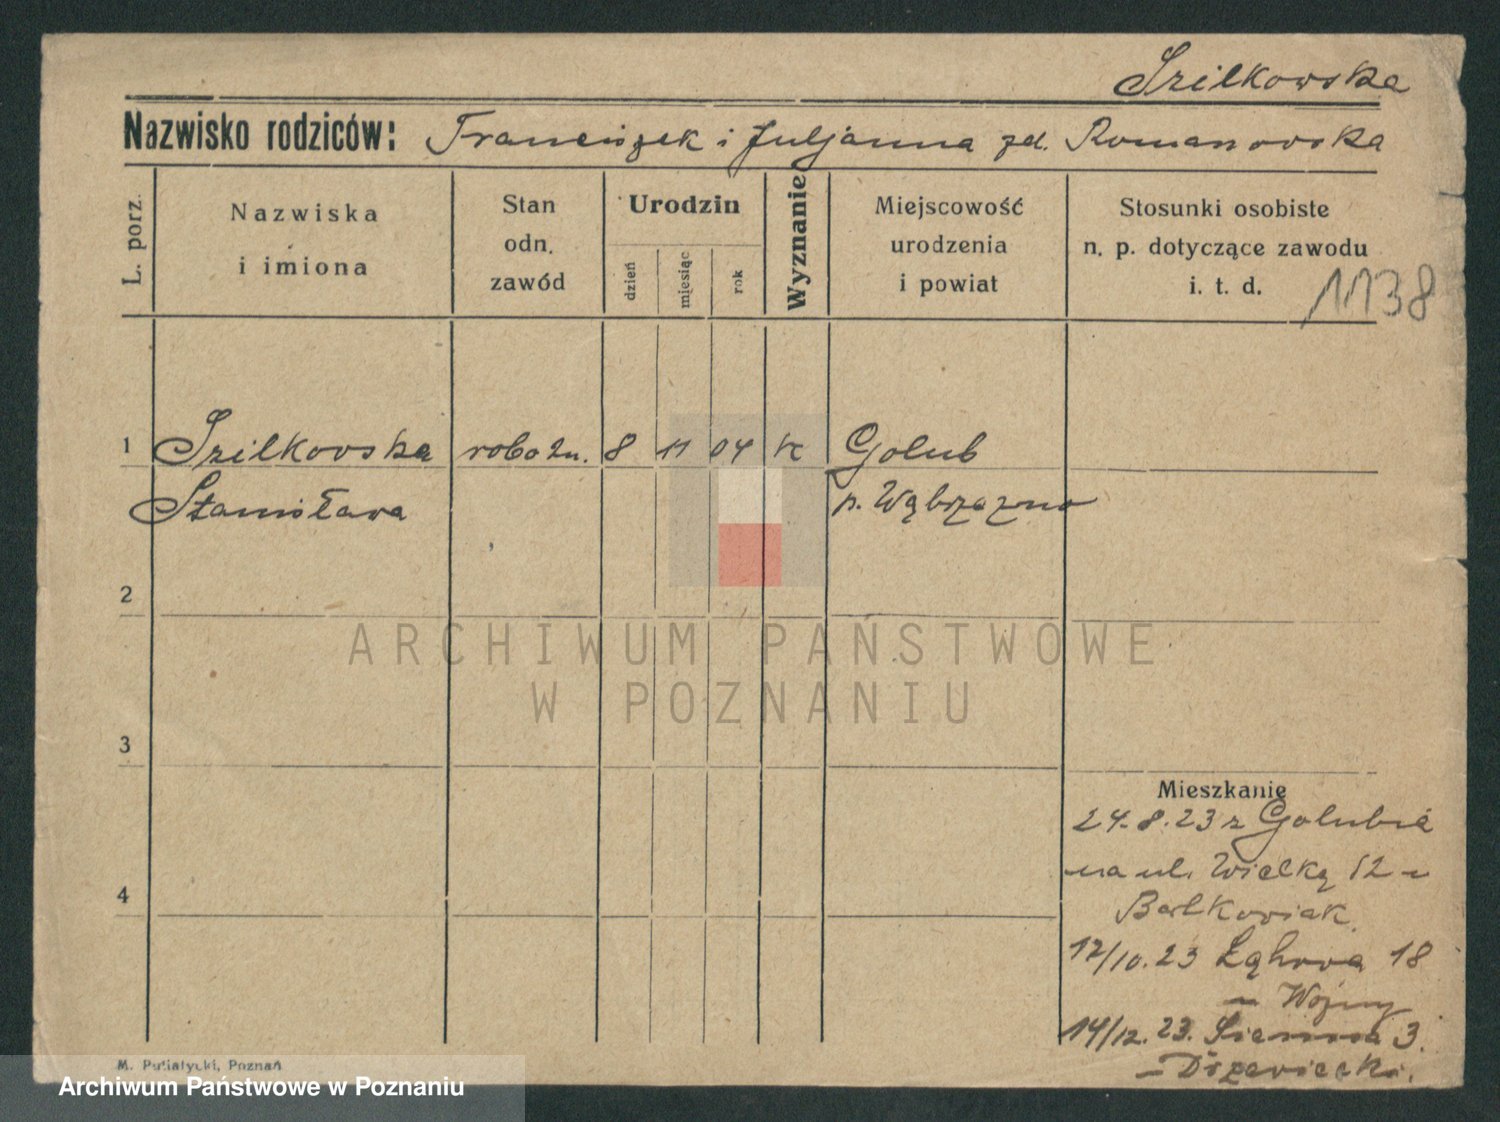 Szilkowska
Nazwisko rodziców: Franciszek i Juljanna zd. Romanowska
L. porz.
Nazwiska
i imiona
Stan
odn.
zawód
Urodzin
dzień
miesiąc
rok
Wyznanie
Miejscowość
urodzenia
i powiat
Stosunki osobiste
n. p. dotyczące zawodu
i. t. d.
1138
1 Szilkowska robotn. 8 11 04 k Golub
Stanisława p. Wąbrzezno
2
3
4
Mieszkanie
24.8.23 z Golubia
na ul. Wielką 12 u
17/10.23 Łąkowa 18
Wojny
14/12.23. Sienna 3.
M. Putiatycki, Poznań
ARCHIWUM PAŃSTWOWE
W POZNANIU
Archiwum Państwowe w Poznaniu